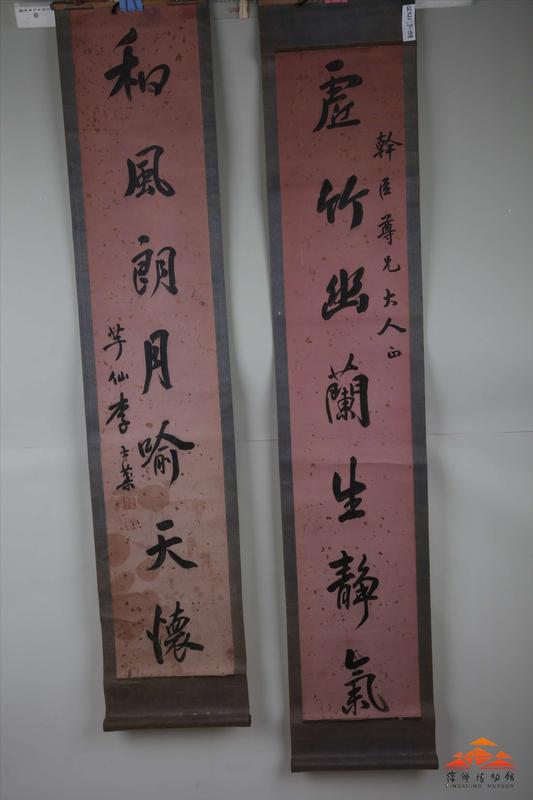 幹臣尊兄大人正
虛竹幽蘭生靜氣
和風朗月喻天懷
芋仙李士棻
萍鄉博物館
PINGXIANG MUSEUM